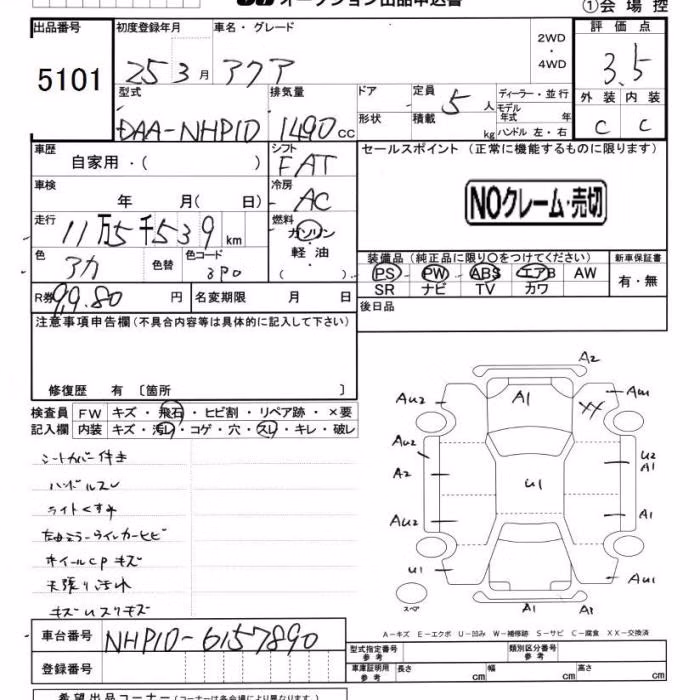 オークション出品申込書
①会場控
出品番号 5101
初度登録年月 25 3月
車名・グレード アクア
2WD・4WD
評価点 3.5
外装 C 内装 C
型式 DAA-NHP10
排気量 1490cc
ドア
形状
定員 5人
積載 kg
ディーラー・並行
モデル年式 年
ハンドル 左・右
車歴 自家用・( )
シフト FAT
セールスポイント (正常に機能するものに限ります)
NOクレーム・売切
車検 年 月( 日)
冷房 AC
走行 11万5千539km
燃料 ガソリン・軽油・( )
色 アカ 色替 色コード 3P0
装備品 (純正品に限り○をつけてください)
PS PW ABS エアB AW
SR ナビ TV カワ
新車保証書 有・無
R券 9,980円 名変期限 月 日
後日品
注意事項申告欄(不具合内容等は具体的に記入して下さい)
修復歴 有〔箇所 〕
検査員記入欄
FW キズ・飛石・ヒビ割・リペア跡・×要
内装 キズ・汚レ・コゲ・穴・スレ・キレ・破レ
シートカバー付き
ハンドルスレ
ライトくすみ
左右ミラーウインカーヒビ
ホイールCPキズ
天張り汚れ
キズUスリキズ
A2
AU2 A1 XX AU1
AU2 U2
A2 U1 A1
AU2 A1
U1 AU1
スペア A1 A1
A-キズ E-エクボ U-凹み W-補修跡 S-サビ C-腐食 XX-交換済
車台番号 NHP10-6157890
登録番号
型式指定番号 参考
類別区分番号 参考
車庫証明用 参考
長さ cm 幅 cm 高さ cm
希望出品コーナー(コーナーは各会場により異なります。)